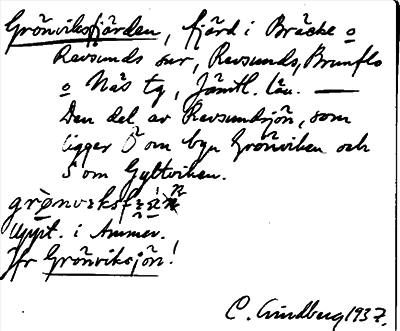 Grönviksfjärden, fjärd i Bräcke o
Revsunds snr, Revsunds, Brunflo
o Näs tg, Jämtl. län. —
Den del av Revsundssjön, som
ligger Ö om byn Grönviken och
S om Gyltviken.
Uppt. i Ammer.
Jfr Grönviksjön!
C. Lindberg 1937.